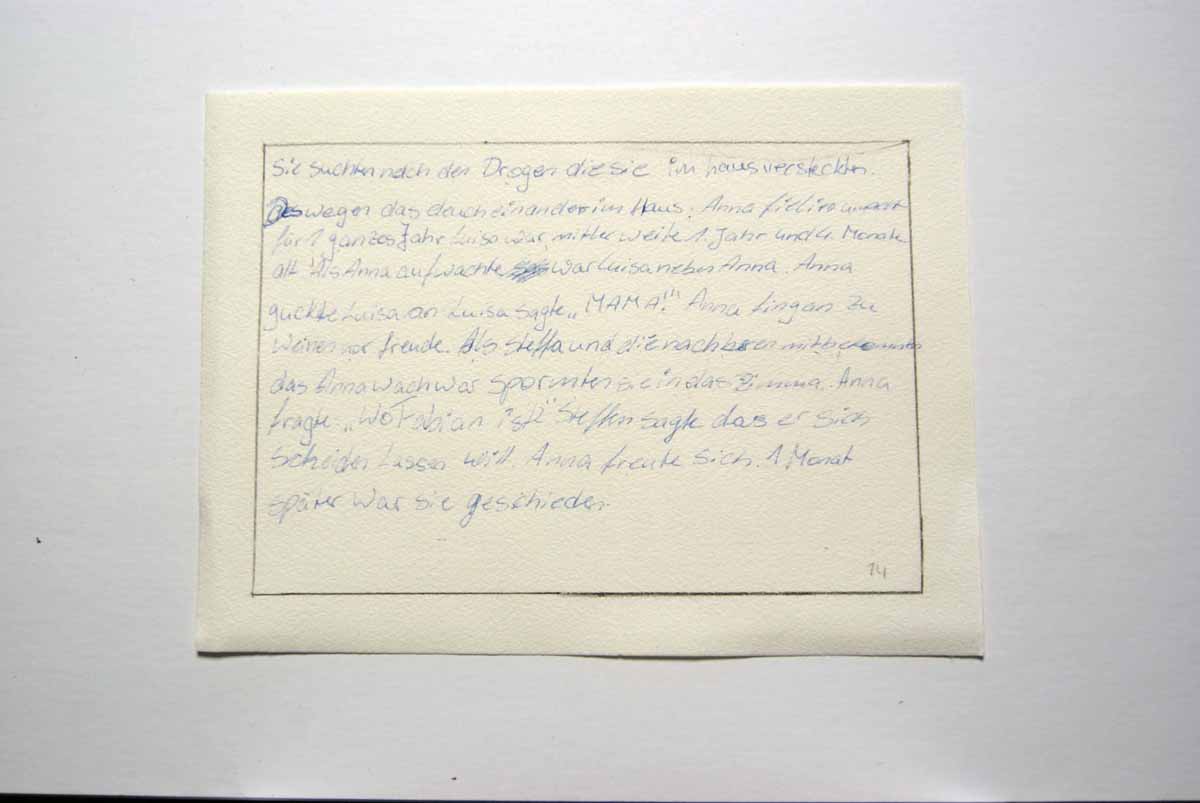 Sie suchten nach den Drogen die sie im haus versteckten.
Deswegen das daucheinander im Haus. Anna fiel
für 1 ganzes Jahr Luisa war mitler weile 1. Jahr und 4. Monate
alt. Als Anna aufwachte war Luisa neben Anna. Anna
guckte Luisa an Luisa sagte „MAMA!" Anna fing an zu
weinen vor freude. Als Steffa und die nachbaren mitbekommen
das Anna wach war sporinten sie in das Zimma. Anna
fragte „Wo Fabian ist?" Steffen sagte das er sich
scheiden Lassen will. Anna freute sich. 1 Monat
später war sie geschieden.
14